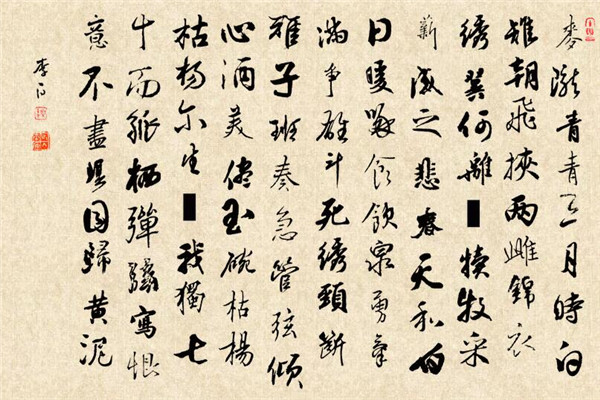 麥隴青青三月時白
雉朝飛挾兩雌錦衣
綉翼何離犢牧采
薪感之悲春天和白
日暖啄食飲泉勇氣
滿爭雄斗死綉頸斷
雉子班奏急管弦傾
心酒美儘玉碗枯楊
枯楊尔生我獨七
十而孤栖彈弦寫恨
意不盡瞑目歸黃泥
李白